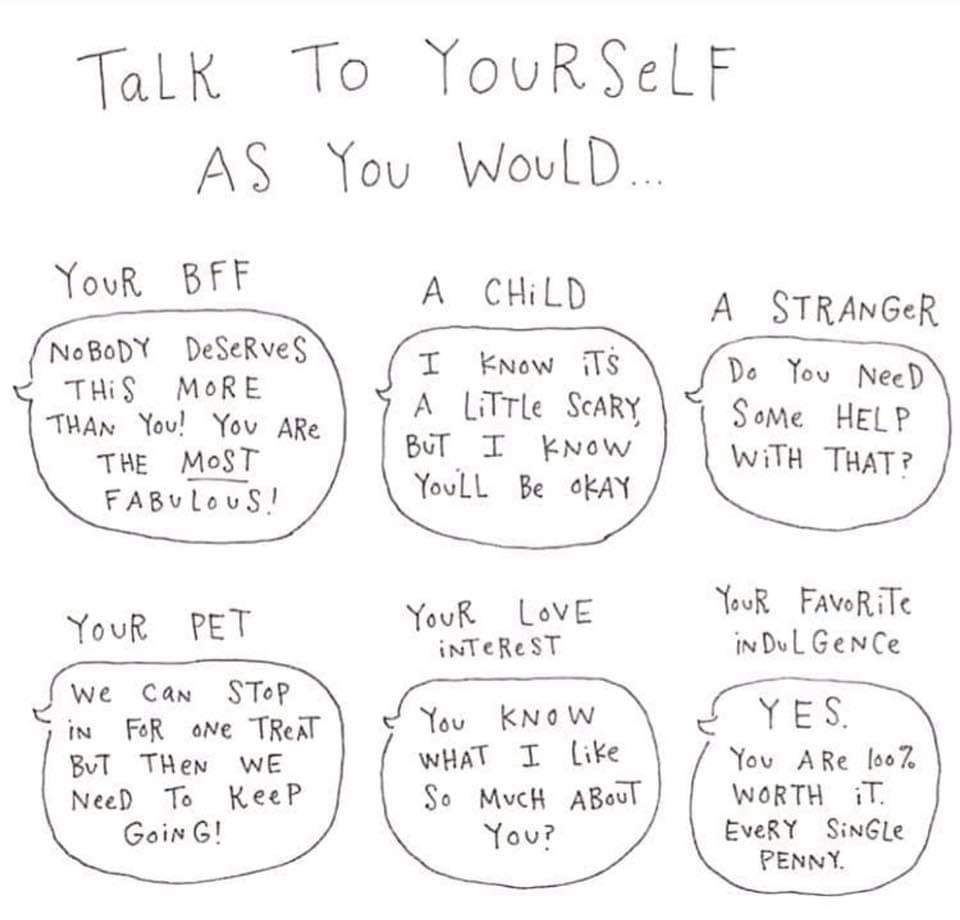 TaLK To YouRSeLF
AS You WouLD...
YouR BFF
NoBoDY DeSeRVeS
THiS MoRE
THAN You! You ARe
THE MoST
FABuLouS!
A CHiLD
I KNow iT'S
A LiTTLe ScARY,
BuT I KNoW
You'LL Be oKAY
A STRANGeR
Do You NeeD
SoMe HELP
WiTH THAT?
YouR PET
We CaN SToP
iN FoR oNe TReAT
BuT THeN WE
NeeD To KeeP
GoiNG!
YouR LoVE
iNTeReST
You KNoW
WHAT I LiKe
So MucH ABouT
You?
YouR FAVoRiTe
iNDuLGeNCe
YES.
You ARe 100%
WoRTH iT.
EVeRY SiNGLe
PENNY.